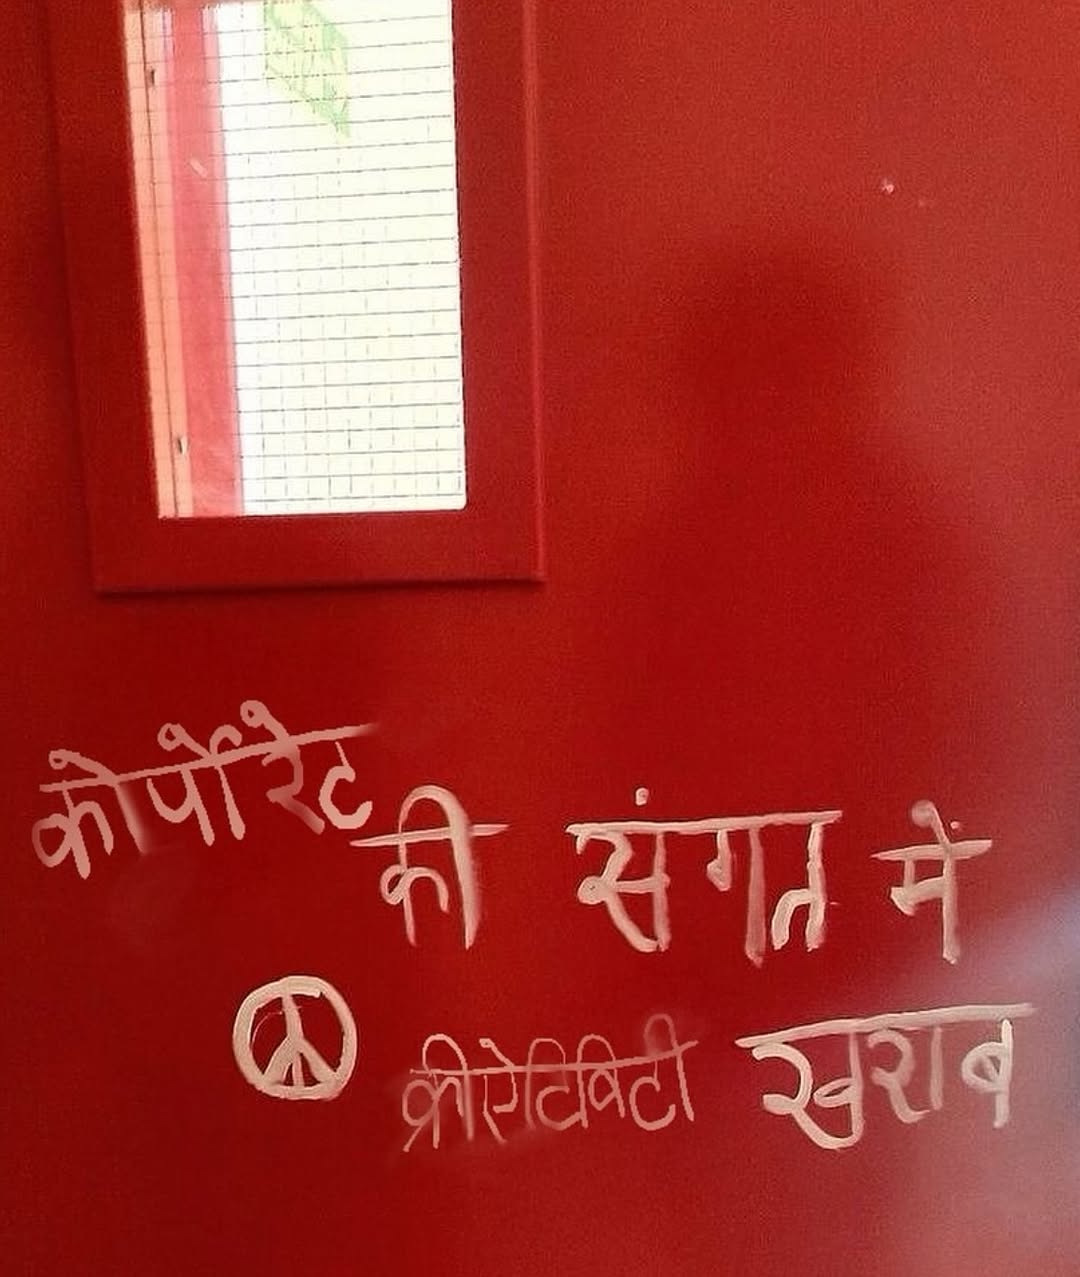 कोर्पोरेट
की संगत में
क्रीऐटिविटी खराब